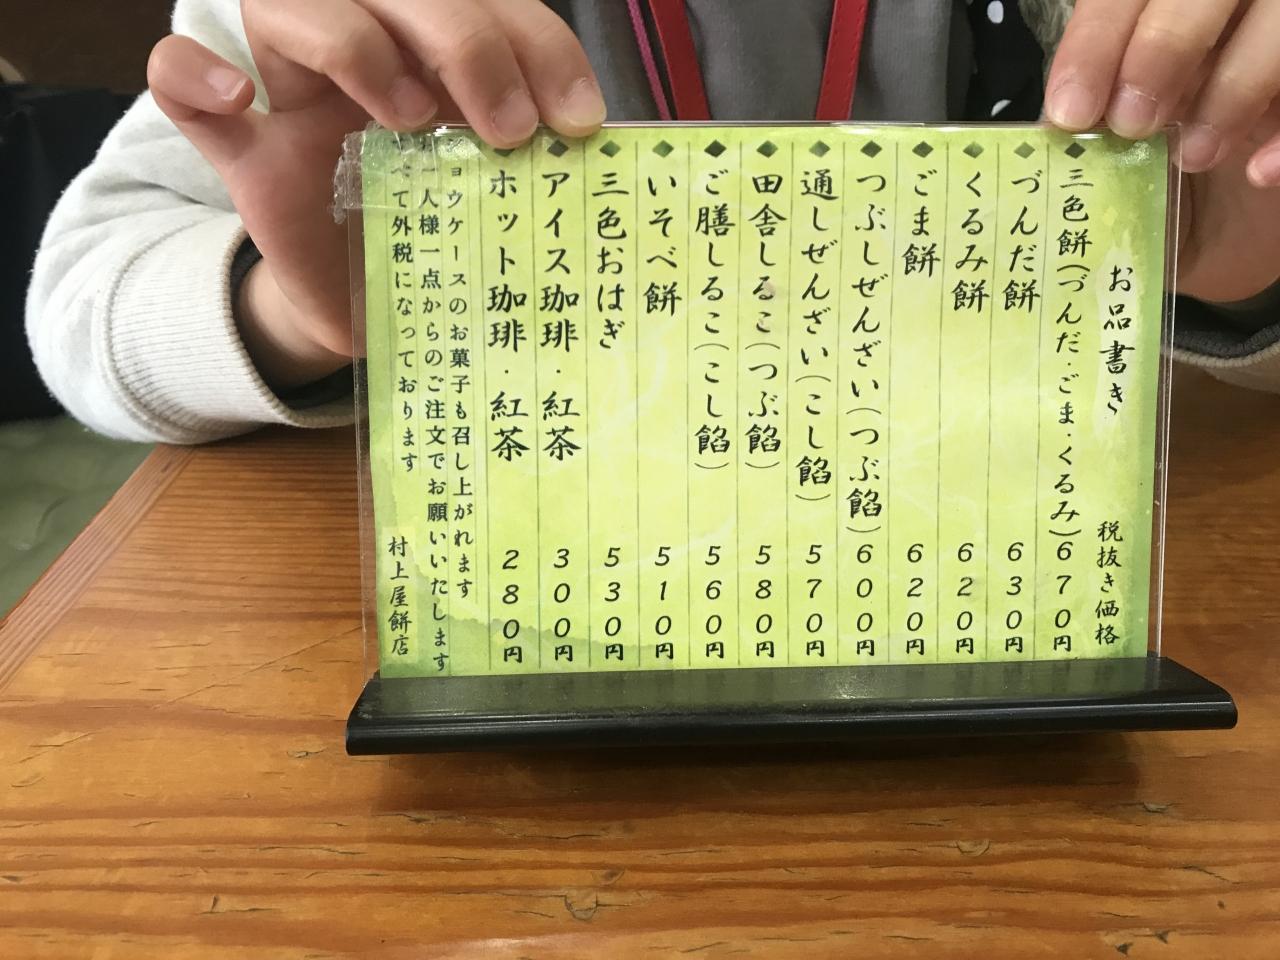 お品書き
税抜き価格
三色餅(づんだ・ごま・くるみ) 670円
づんだ餅 630円
くるみ餅 620円
ごま餅 620円
つぶしぜんざい(つぶ餡) 600円
通しぜんざい(こし餡) 570円
田舎しるこ(つぶ餡) 580円
ご膳しるこ(こし餡) 560円
いそべ餅 510円
三色おはぎ 530円
アイス珈琲・紅茶 300円
ホット珈琲・紅茶 280円
ショウケースのお菓子も召し上がれます
お一人様一点からのご注文でお願いいたします
すべて外税になっております
村上屋餅店